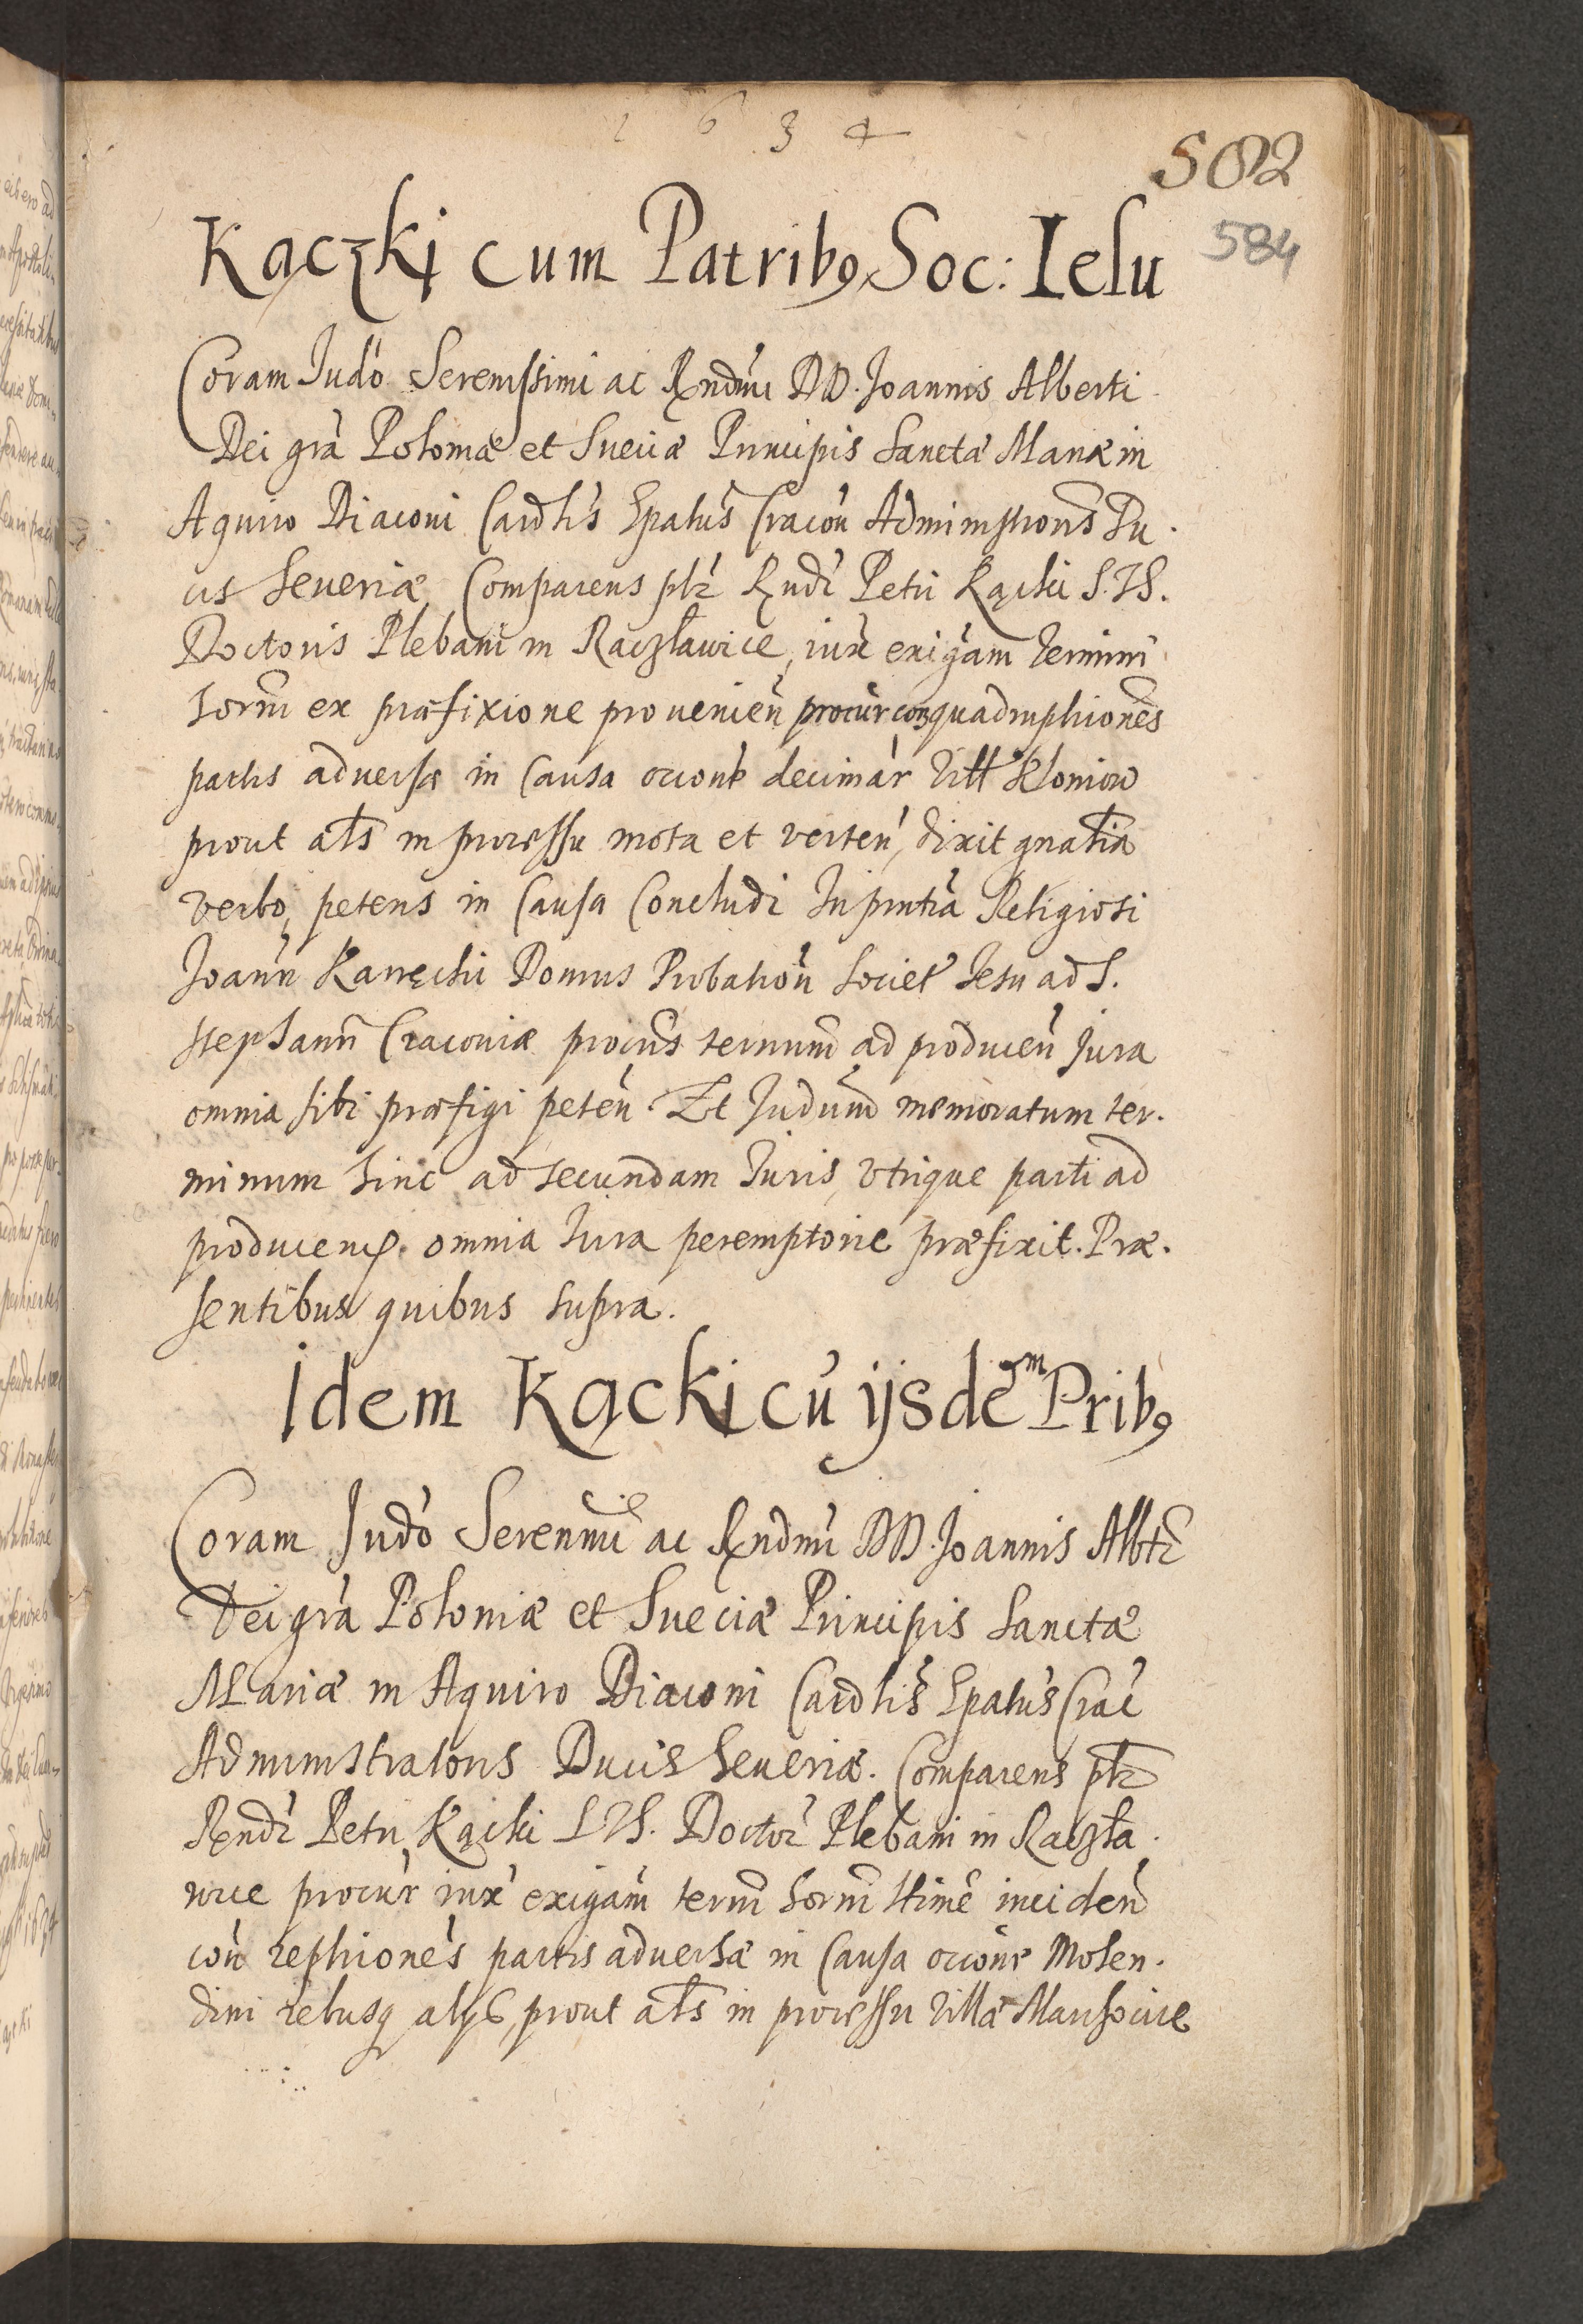 1 6 3 4
502
584
Kączki cum Patribꝯ Soc: Iesu
Coram Judō Serenissimi ac Rndmi DD. Joannis Alberti
Dei grā Poloniæ et Sueciæ Principis Sanctæ Mariæ in
Aquiro Diaconi Cardlis Epatus Cracoṅ Administrōris Du.
cis Seueriæ, Comparens plr Rndi Petri Kącki S. Th.
Doctoris Plebani in Raczławice, iux exigām Termini
horni ex præfixione prouenieṅ procur con quadruplionēs
partis aduersæ in Causa occone decimār Vill Kloniow
prout als in processu mota et verteṅ, dixit gnalia
verbo, petens in Causa Concludi In pntia Religiosi
Joanṅ Kanięcki Domus Probatioṅ Societ Jesu ad S.
Stephanṅ Cracoviæ procris terminū ad producen Jura
omnia sibi præfigi peteṅ. Et Judum memoratum ter.
minum hinc ad secundam Juris, vtrique parti ad
producenḍ. omnia Jura peremptorie præfixit. Præ.
sentibus quibus supra.
Idem Kącki cū ijsdēm Pribꝯ
Coram Judō Serenmi ac Rndmi DD. Joannis Albti
Dei grā Poloniæ et Sueciæ Principis Sanctæ
Mariæ in Aquiro Diaconi Cardlis Epatus Crac
Administratoris Ducis Seueriæ. Comparens plr
Rendi Petri Kącki S Th. Doctor Plebani in Raczła.
wice procur iux exigām term horni ltime incideṅ
coṅ replionēs partis aduersæ in Causa occone Molen.
dini rebusq alijs, prout als in processu Villæ